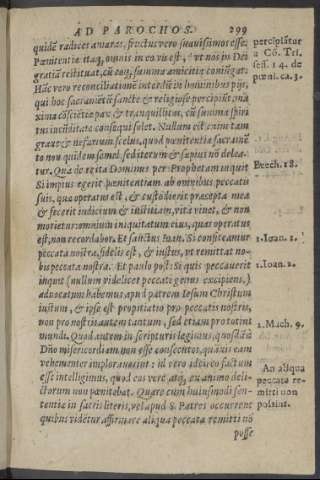 AD PAROCHOS. 299
quidē radices amaras, fructus vero suauissimos esse.
Pœnitentiæ itaq; omnis in eo vis est, vt nos in Dei
gratiā restituat, cū eoq; summa amicitia coniūgat.
Hāc vero reconciliationē interdū in hominibus pijs,
qui hoc sacramētū sancte & religiose percipiūt, ma
xima cōscietiæ pax & tranquillitas, cū summa spiri
tus iucūditate consequi solet. Nullum est enim tam
graue & nefarium scelus, quod pœnitentiæ sacramē
to non quidem semel, sed iterum & sæpius nō delea-
tur. Qua de re ita Dominus per Prophetam inquit
Si impius egerit pœnitentiam ab omnibus peccatis
suis, quæ operatus est, & custodierit præcepta mea
& fecerit iudicium & iustitiam, vita viuet, & non
morietur: omnium iniquitatum eius, quas operatus
est, non recordabor. Et sanctus Ioan. Si confiteamur
peccata nostra, fidelis est, & iustus, vt remittat no-
bis peccata nostra. Et paulo post: Si quis peccauerit
inquit (nullum videlicet peccati genus excipiens,)
aduocatum habemus apud patrem Iesum Christum
iustum, & ipse est propitiatio pro peccatis nostris,
non pro nostris autem tantum, sed etiam pro totius
mundi. Quod autem in scripturis legimus, quosdā à
Dño misericordiam non esse consecutos, quāuis eam
vehementer implorauissent: id vero ideirco factum
esse intelligimus, quod eos vere atq; ex animo deli-
ctorum non pœnitebat. Quare cum huiusmodi sen-
tentiæ in sacris literis, vel apud S. Patres occurrent
quibus vidētur affirmare aliqua peccata remitti nō
posse
percipiātur
a Cō. Tri.
sess. 14. de
pœni. ca. 3.
Ezech. 18.
1. Ioan. 1.
1. Ioan. 2.
2. Mach. 9.
An aliqua
peccata re-
mitti non
possint.